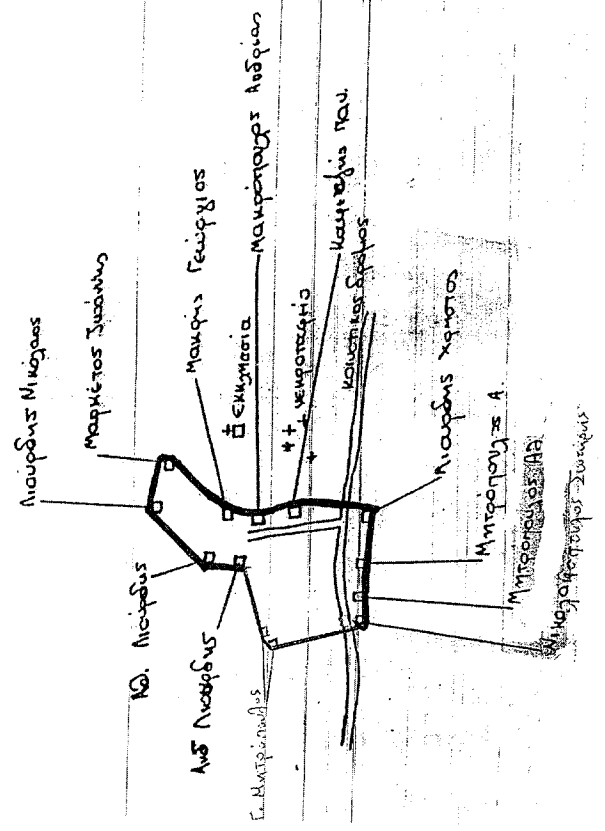 Λιούρδης Νικόλαος
Μαρκέτος Ιωάννης
Μακρής Γεώργιος
εκκλησία
Μακρόπουλος Ανδρέας
νεκροταφείο
Παν.
κοινοτικός δρόμος
Λιούρδης Χρήστος
Μητρόπουλος Α.
Μητρόπουλος Αθ.
Νικολακόπουλος Σωτήρης
Αθ. Λιούρδης
Λιούρδης
Γ. Μητρόπουλος